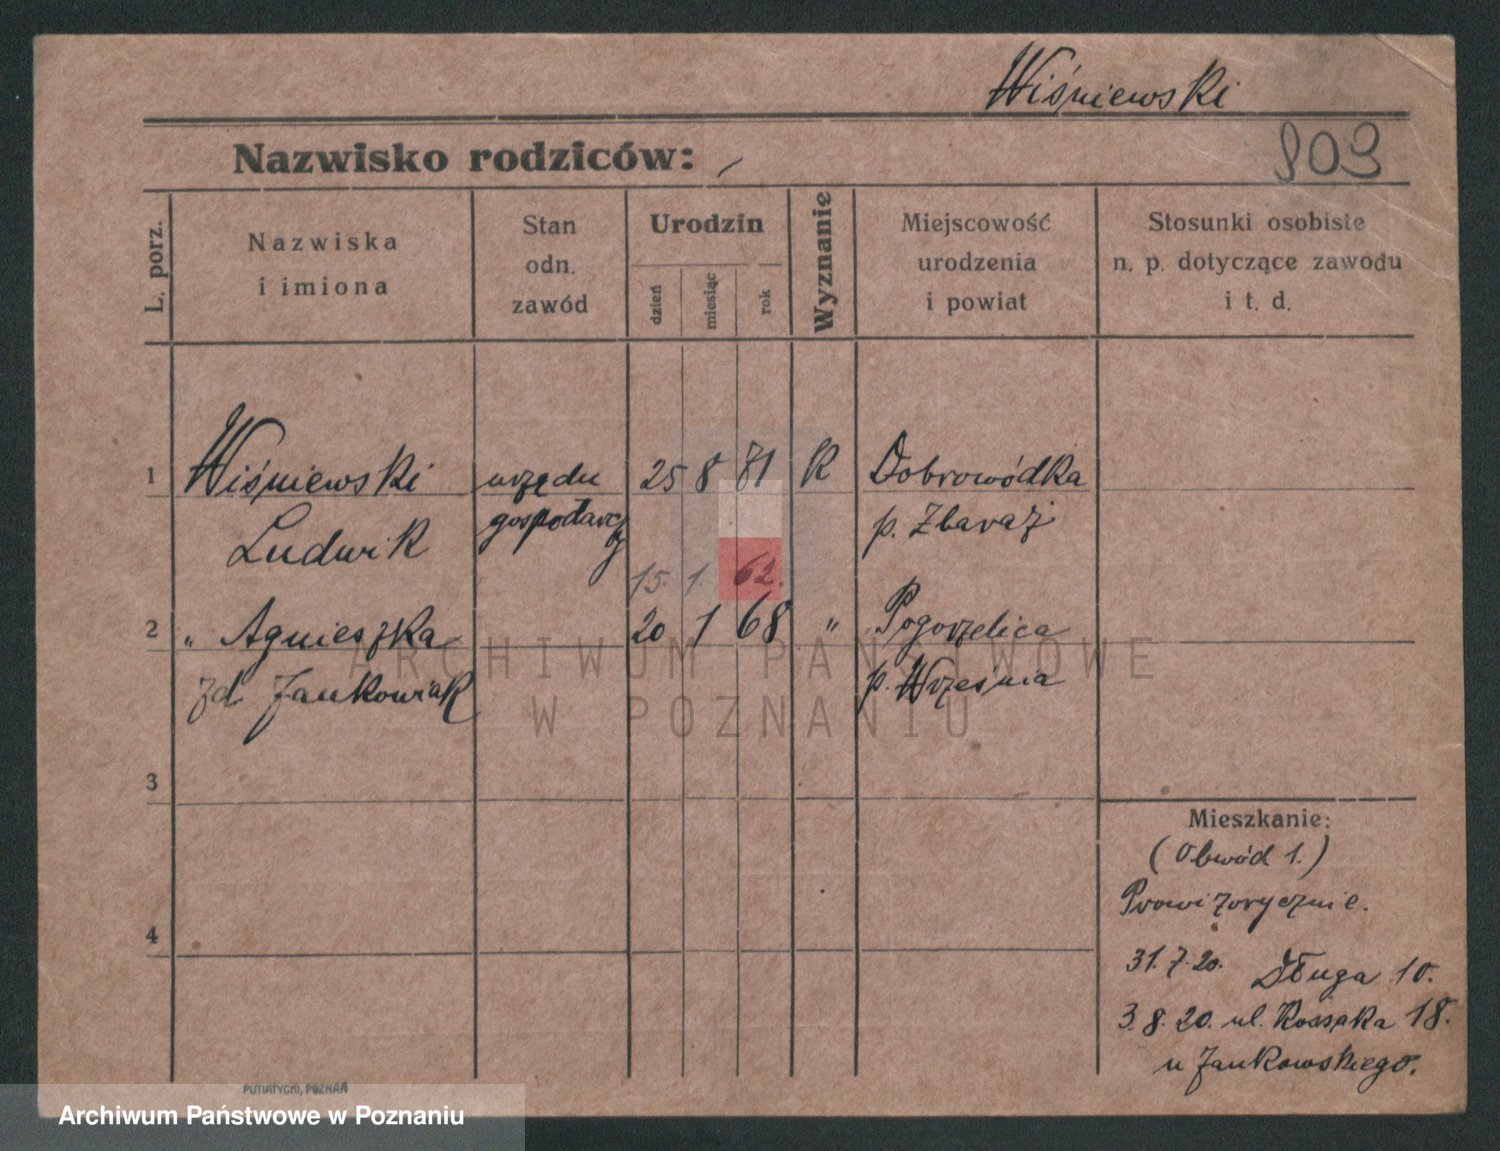 Wiśniewski
903
Nazwisko rodziców:
L. porz.
Nazwiska
i imiona
Stan
odn.
zawód
Urodzin
dzień
miesiąc
rok
Wyznanie
Miejscowość
urodzenia
i powiat
Stosunki osobiste
n. p. dotyczące zawodu
i t. d.
1 Wiśniewski urzędn 25 8 71 K Dobrowódka
Ludwik gospodarczy p. Zbaraż
15. 1. 62.
2 " Agnieszka 20 1 68 " Pogorzelica
zd. Jankowiak p. Września
3
4
Mieszkanie:
(Obwód 1.)
Prowizorycznie.
31.7.20. Długa 10.
3.8.20. ul. Kossaka 18.
u Jankowskiego.
PUTIATYCKI, POZNAŃ
ARCHIWUM PAŃSTWOWE
W POZNANIU
Archiwum Państwowe w Poznaniu